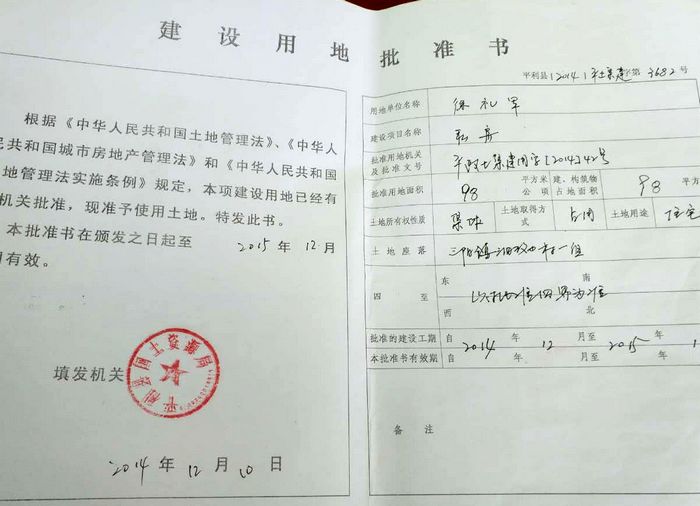 建设用地批准书
根据《中华人民共和国土地管理法》、《中华人
民共和国城市房地产管理法》和《中华人民共和国
地管理法实施条例》规定，本项建设用地已经有
机关批准，现准予使用土地。特发此书。
本批准书在颁发之日起至 2015 年 12 月
有效。
平利县国土资源局
填发机关
2014 年 12 月 10 日
平利县(2014)平土集建字第3682号
用地单位名称 徐礼军
建设项目名称
批准用地机关及批准文号 平政土集建用字[2014]42号
批准用地面积 98 平方米 公顷 建、构筑物占地面积 98 平方
土地所有权性质 集体 土地取得方式 占用 土地用途 住宅
土地座落 三阳镇 村一组
四至 东 南 西 北 以实地 四界为准
批准的建设工期 自 2014 年 12 月至 2015 年 1
本批准书有效期 自 年 月至 年
备注